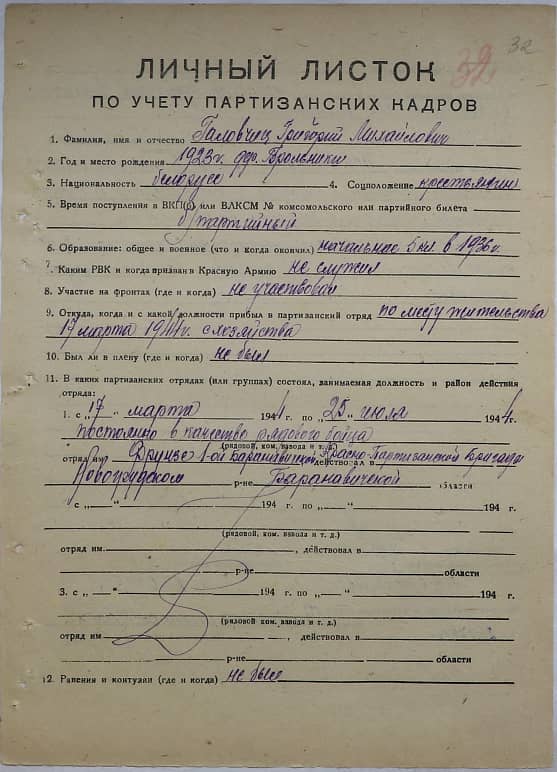 32
32
ЛИЧНЫЙ ЛИСТОК
ПО УЧЕТУ ПАРТИЗАНСКИХ КАДРОВ
1. Фамилия, имя и отчество Галовчиц Григорий Михайлович
2. Год и место рождения 1923 г. дер.
3. Национальность белорусс 4. Соцположение крестьянин
5. Время поступления в ВКП(б) или ВЛКСМ № комсомольского или партийного билета
б/партийный
6. Образование: общее и военное (что и когда окончил) начальное 5 кл. в 1936 г.
7. Каким РВК и когда призван в Красную Армию не служил
8. Участие на фронтах (где и когда) не участвовал
9. Откуда, когда и с какой должности прибыл в партизанский отряд по месту жительства
17 марта 1944 г. с хозяйства
10. Был ли в плену (где и когда) не был
11. В каких партизанских отрядах (или группах) состоял, занимаемая должность и район действия
отряда:
1. с „17“ марта 1944 г. по „25“ июля 1944 г.
постоянно в качество рядового бойца
(рядовой, ком. взвода и т. д.)
отряд им. 1-ой Красно-Партизанской Бригады действовал в
Новогрудском р-не Барановичской области
с „—“ 194 г. по „—“ 194 г.
(рядовой, ком. взвода и т. д.)
отряд им. , действовал в
р-не области
3. с „—“ 194 г. по „—“ 194 г.
(рядовой ком. взвода и т. д.)
отряд им , действовал в
р-не области
12. Ранения и контузии (где и когда) не было